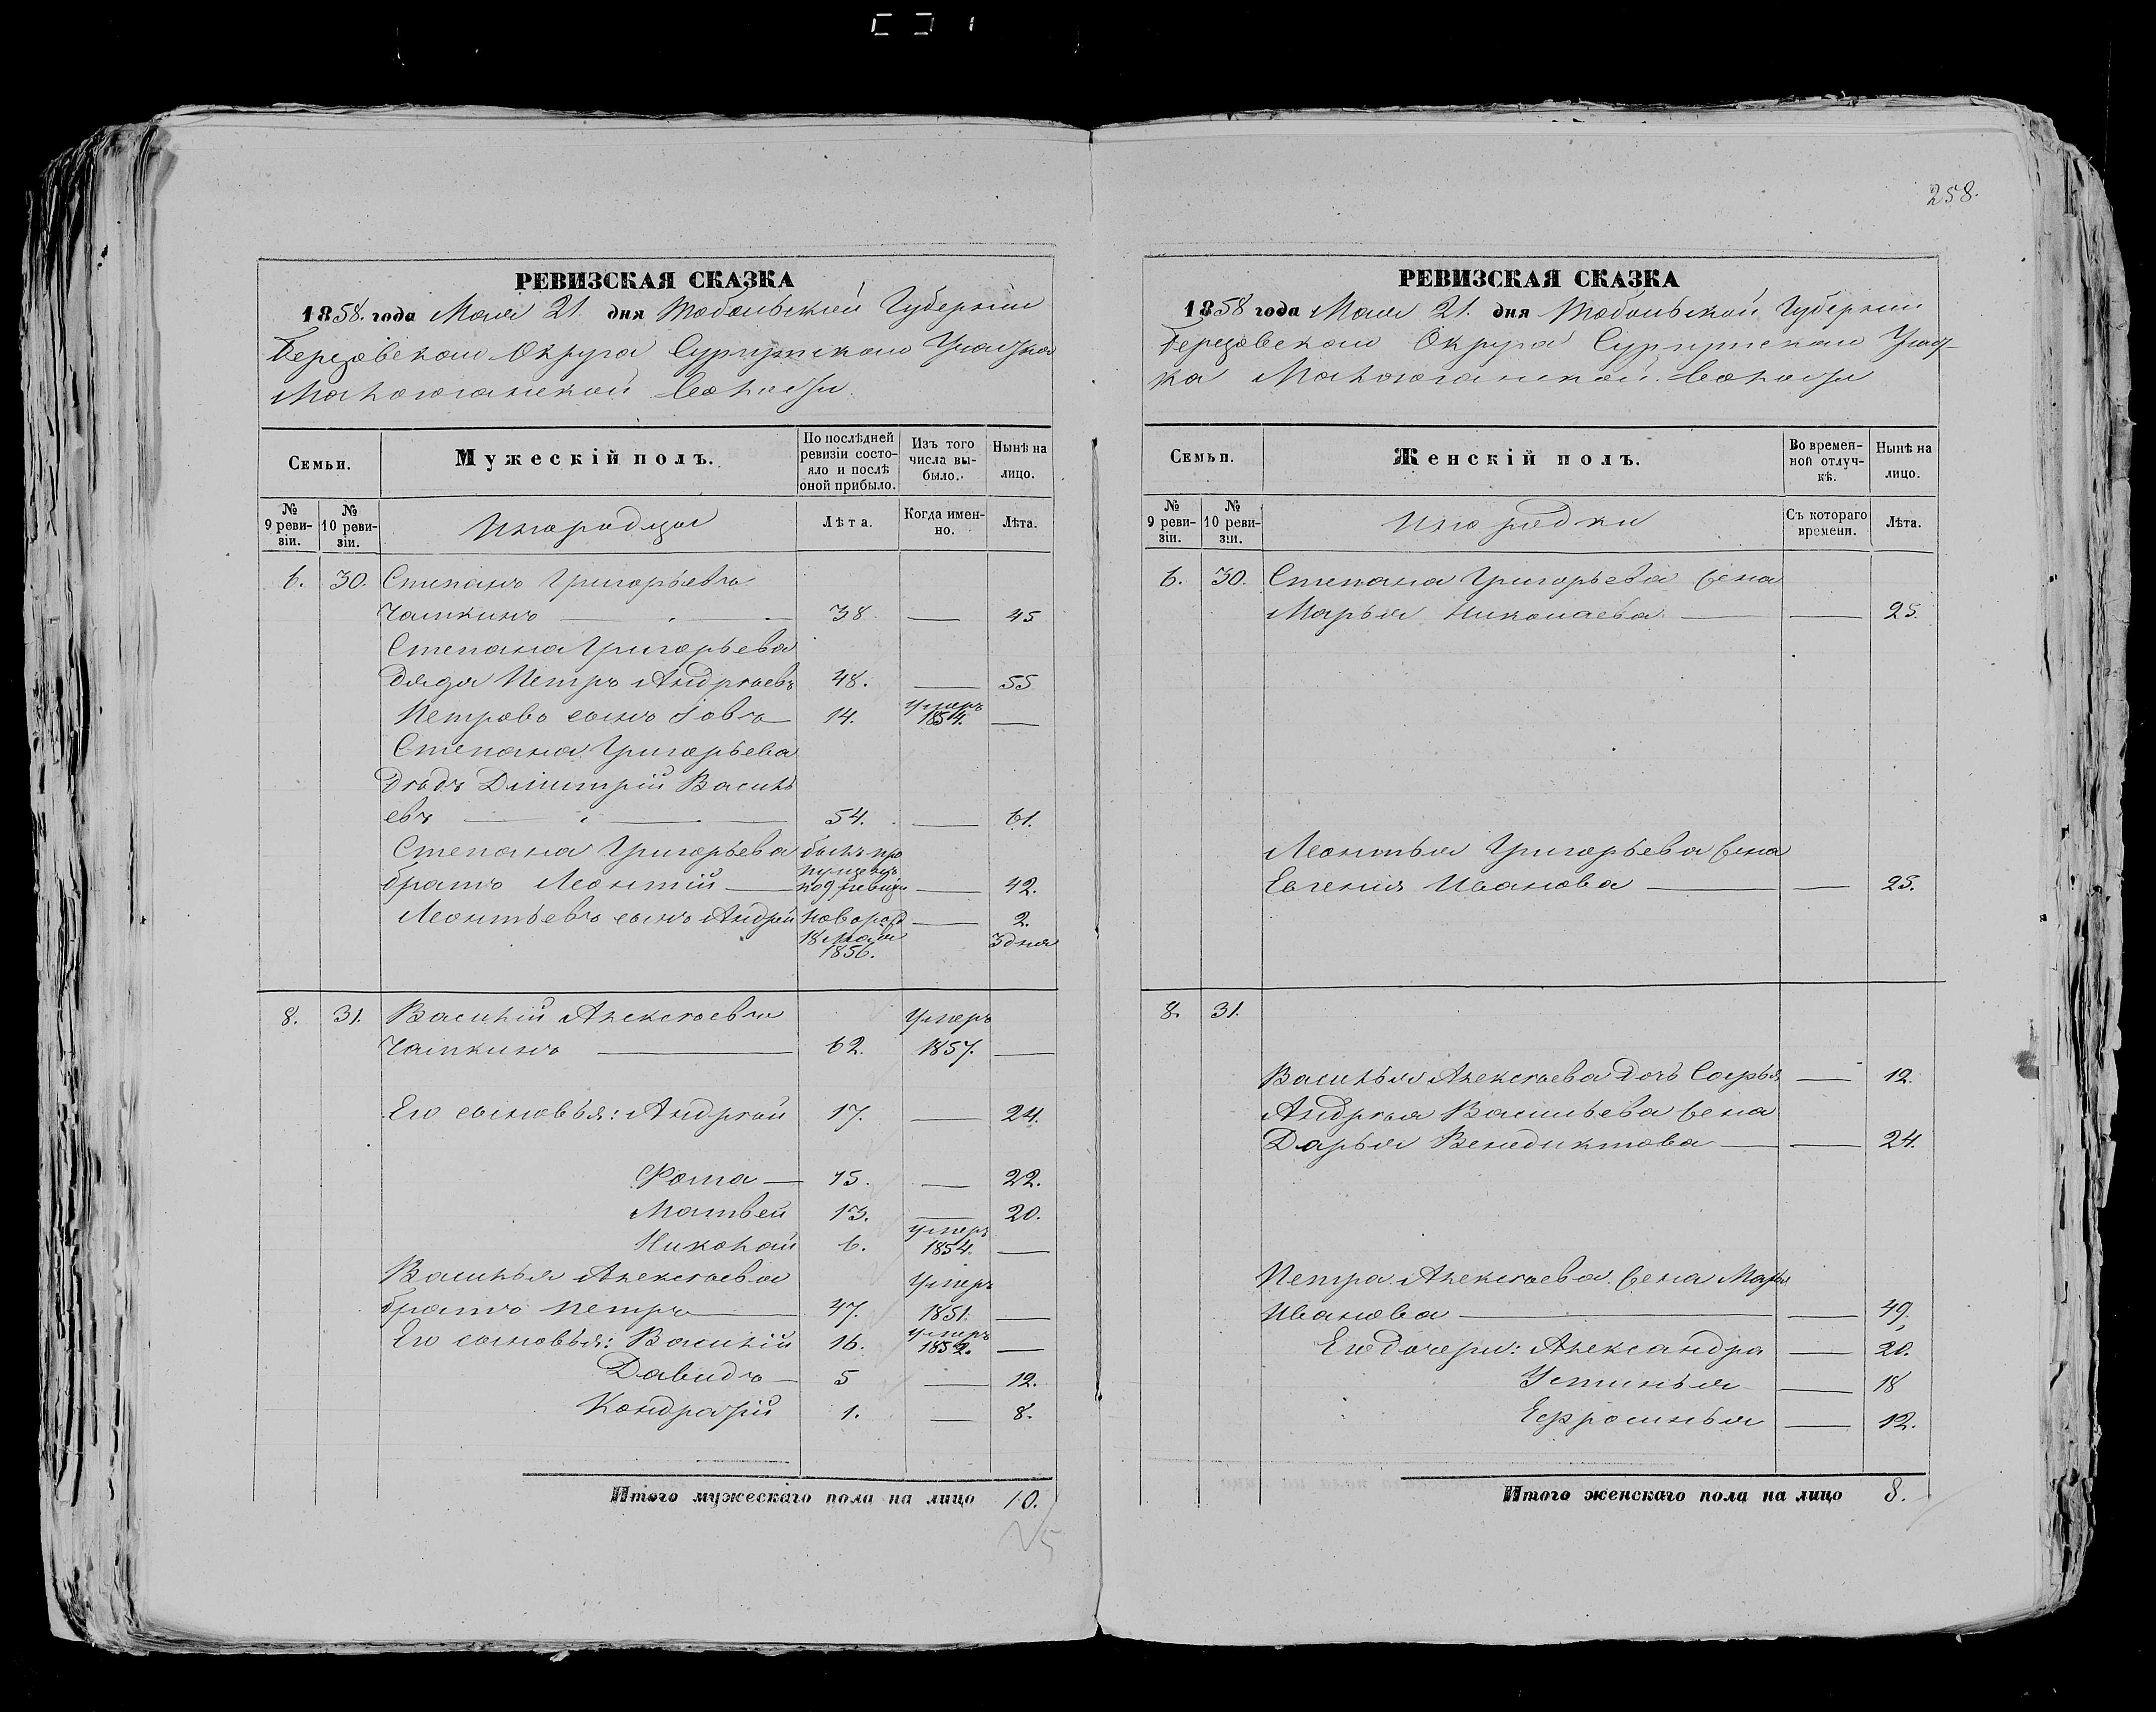 258.
РЕВИЗСКАЯ СКАЗКА
1858. года Мая 21. дня Тобольской Губерніи
Березовскаго Округа Сургутскаго Участка
Малоюганской Волости.
Семьи.
Мужескій полъ.
По послѣдней ревизіи состояло и послѣ оной прибыло.
Изъ того числа выбыло.
Нынѣ на лицо.
№ 9 ревизіи.
№ 10 ревизіи.
Инородцы
Лѣта.
Когда именно.
Лѣта.
6. 30. Степанъ Григорьевъ
Чамкинъ 38. — 45
Степана Григорьева
дядя Петръ Андреевъ 48. — 55
Петровъ сынъ Іовъ 14. умеръ 1854. —
Степана Григорьева
дѣдъ Димитрій Василь
евъ 54. — 61.
Степана Григорьева былъ про
братъ Леонтій пущенъ по 9 ревизіи — 42.
Леонтьевъ сынъ Андрей новорож — 2.
18 мая 3 дня
1856.
8. 31. Василій Алексѣевъ Умеръ
Чамкинъ 62. 1857. —
Его сыновья: Андрей 17. — 24.
Фома 15. — 22.
Матвей 13. — 20.
Николай 6. умеръ 1854. —
Василья Алексѣева Умеръ
братъ Петръ 47. 1851. —
Его сыновья: Василій 16. умеръ 1852. —
Давидъ 5 — 12.
Кондратій 1. — 8.
Итого мужескаго пола на лицо 10.
РЕВИЗСКАЯ СКАЗКА
1858 года Мая 21. дня Тобольской Губерніи
Березовскаго Округа Сургутскаго Участ-
ка Малоюганской Волости
Семьи.
Женскій полъ.
Во временной отлучкѣ.
Нынѣ на лицо.
№ 9 ревизіи.
№ 10 ревизіи.
Инородки
Съ котораго времени.
Лѣта.
6. 30. Степана Григорьева жена
Марья Николаева — 25.
Леонтья Григорьева жена
Евгенія Иванова — 25.
8. 31.
Василья Алексѣева дочь Софья — 12.
Андрея Васильева жена
Дарья Венедиктова — 24.
Петра Алексѣева жена Марья
Иванова — 49.
Его дочери: Александра — 20.
Устинья — 18
Ефросинья — 12.
Итого женскаго пола на лицо 8.